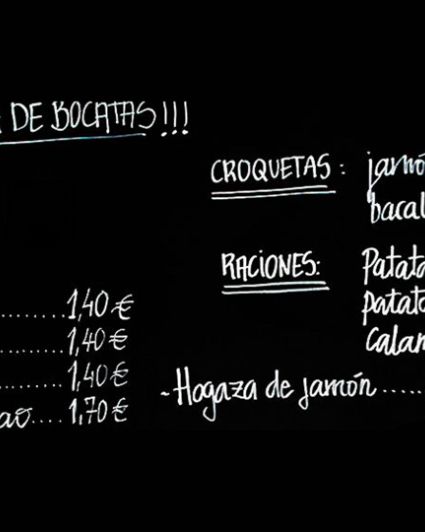 DE BOCATAS!!!
CROQUETAS: jamó
bacal
RACIONES: Patata
patata
calam
........1,40 €
........1,40 €
........1,40 €
ao....1,70 €
-Hogaza de jamón.....